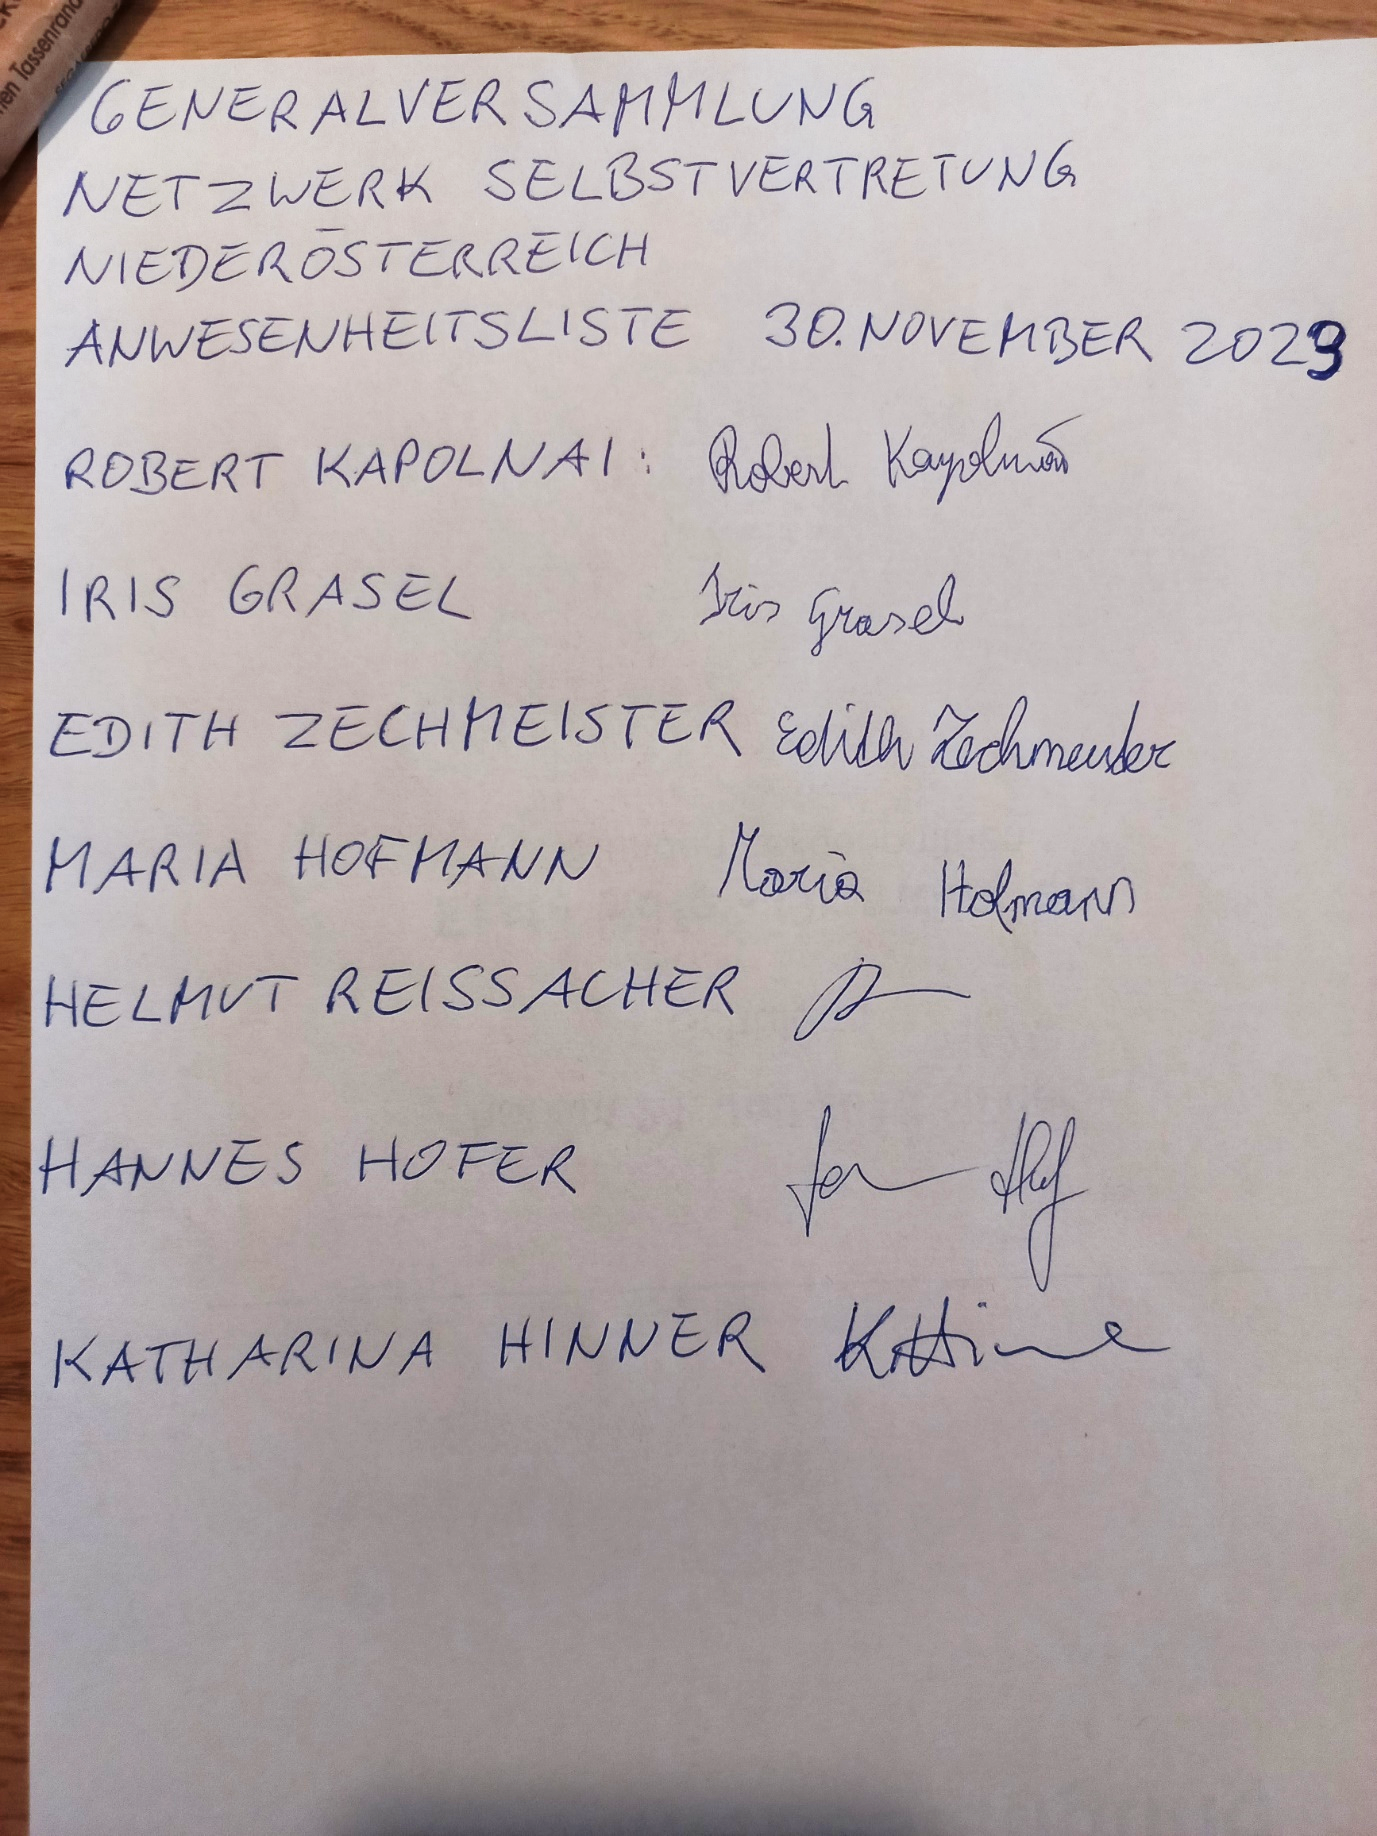 hen Tassenrand
GENERALVERSAMMLUNG
NETZWERK SELBSTVERTRETUNG
NIEDERÖSTERREICH
ANWESENHEITSLISTE 30. NOVEMBER 2023
ROBERT KAPOLNAI: Robert Kapolnai
IRIS GRASEL Iris Grasel
EDITH ZECHMEISTER Edith Zechmeister
MARIA HOFMANN Maria Hofmann
HELMUT REISSACHER
HANNES HOFER
KATHARINA HINNER